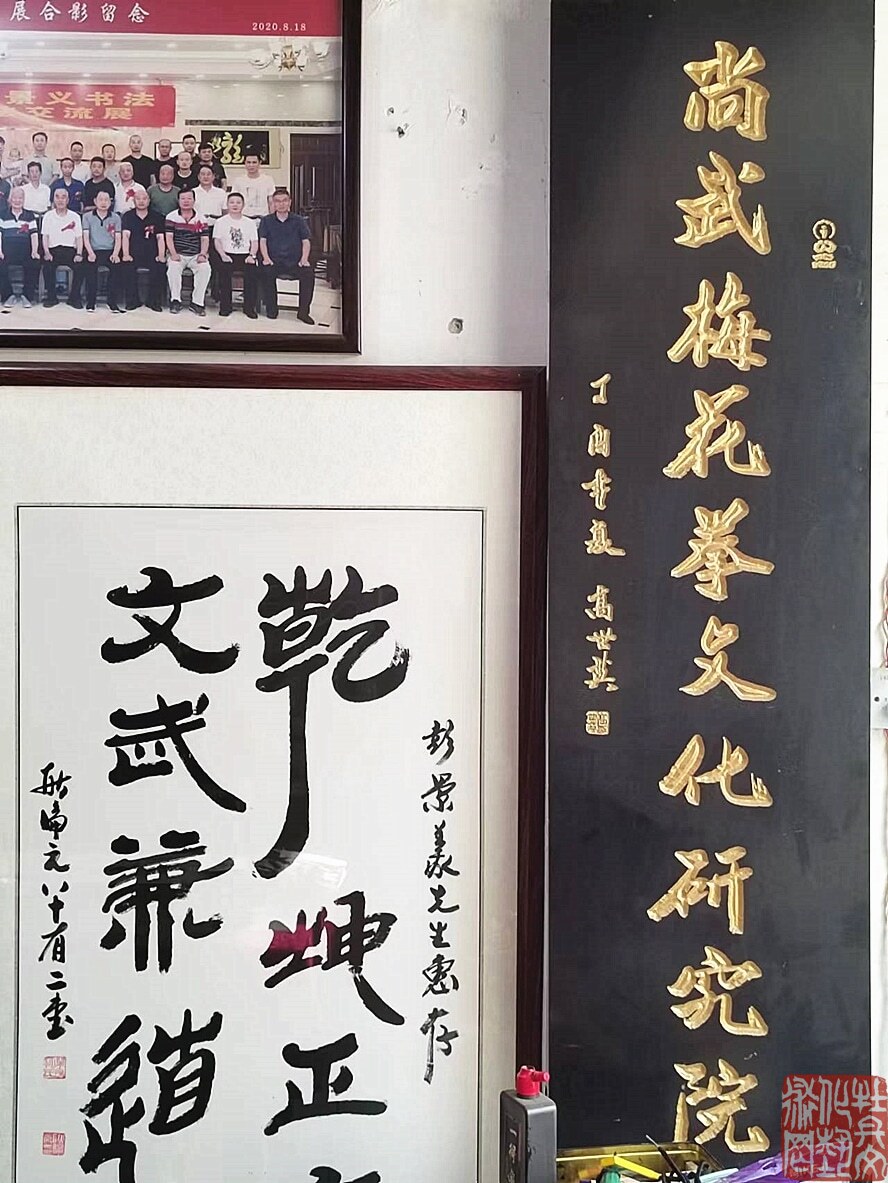 展合影留念
2020.8.18
景义书法
交流展
尚武梅花拳文化研究院
丁酉年夏 高世英
彭景義先生惠存
乾坤正
文武兼道
元八十有二書
牡丹文
化艺
术网